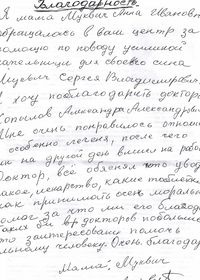 Благодарность.
Я мама Мцевич Анна Ивановна
обращалась в ваш центр за
помощью по поводу успешной
для своего сына
Мцевич Сергея Владимировича.
Я хочу поблагодарить доктора
Александра Александровича
Мне очень понравилось отношение
особенно лечения, после чего
на другой день вышел на работу
Доктор, все объяснял что
какое, лекарство, какие таблетки
как принимать очень морально
помог за что им его благодарю
таких бы в докторов побольше
что заинтересован помочь
больному человеку. Очень благодарна
Мама: Мцевич